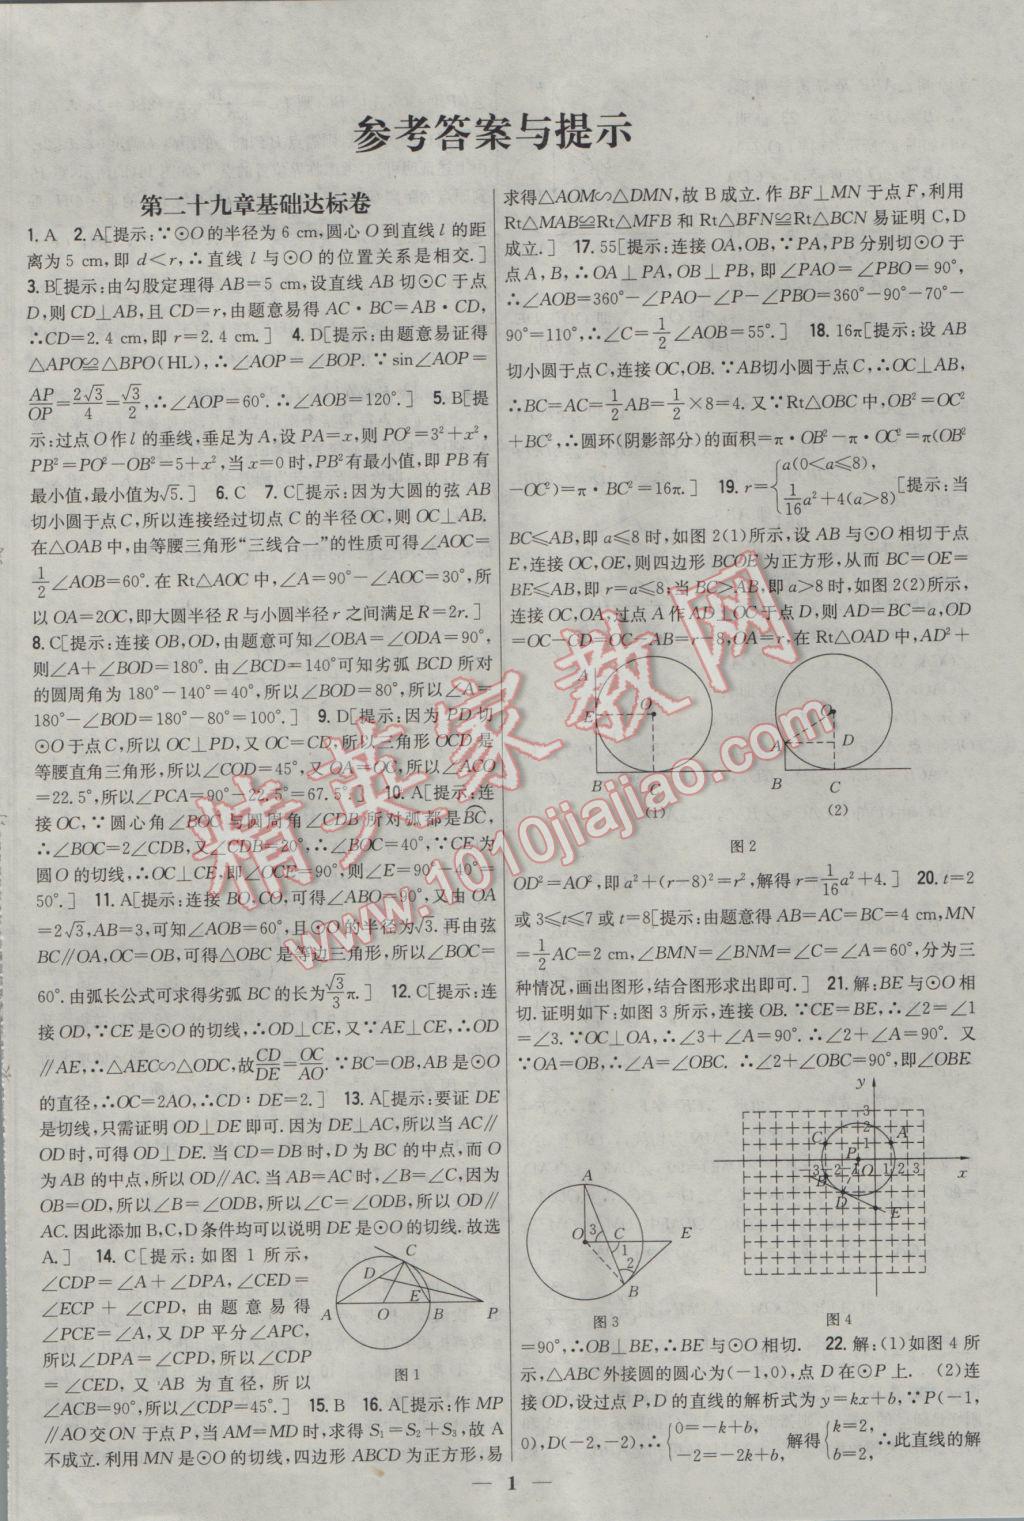 参考答案与提示
第二十九章基础达标卷
1. A　2. A[提示:∵⊙O的半径为6 cm,圆心O到直线l的距
离为5 cm,即d<r,∴直线l与⊙O的位置关系是相交.]
3. B[提示:由勾股定理得AB=5 cm,设直线AB切⊙C于点
D,则CD⊥AB,且CD=r,由题意易得AC·BC=AB·CD,
∴CD=2.4 cm,即r=2.4 cm.]　4. D[提示:由题意易证得
△APO≌△BPO(HL),∴∠AOP=∠BOP.∵sin∠AOP=
AP/OP=2√3/4=√3/2,∴∠AOP=60°.∴∠AOB=120°.]　5. B[提
示:过点O作l的垂线,垂足为A,设PA=x,则PO²=3²+x²,
PB²=PO²-OB²=5+x²,当x=0时,PB²有最小值,即PB有
最小值,最小值为√5.]　6. C　7. C[提示:因为大圆的弦AB
切小圆于点C,所以连接经过切点C的半径OC,则OC⊥AB.
在△OAB中,由等腰三角形“三线合一”的性质可得∠AOC=
1/2∠AOB=60°.在Rt△AOC中,∠A=90°-∠AOC=30°,所
以OA=2OC,即大圆半径R与小圆半径r之间满足R=2r.]
8. C[提示:连接OB,OD,由题意可知∠OBA=∠ODA=90°,
则∠A+∠BOD=180°.由∠BCD=140°可知劣弧BCD所对
的圆周角为180°-140°=40°,所以∠BOD=80°,所以∠A=
180°-∠BOD=180°-80°=100°.]　9. D[提示:因为PD切
⊙O于点C,所以OC⊥PD,又OC=CD,所以三角形OCD是
等腰直角三角形,所以∠COD=45°,又OA=OC,所以∠ACO
=22.5°,所以∠PCA=90°-22.5°=67.5°.]　10. A[提示:连
接OC,∵圆心角∠BOC与圆周角∠CDB所对弧都是BC,
∴∠BOC=2∠CDB,又∠CDB=20°,∴∠BOC=40°,∵CE为
圆O的切线,∴OC⊥CE,即∠OCE=90°,则∠E=90°-40°=
50°.]　11. A[提示:连接BO,CO,可得∠ABO=90°,又由OA
=2√3,AB=3,可知∠AOB=60°,且⊙O的半径为√3.再由弦
BC∥OA,OC=OB,可得△OBC是等边三角形,所以∠BOC=
60°.由弧长公式可求得劣弧BC的长为√3/3π.]　12. C[提示:连
接OD,∵CE是⊙O的切线,∴OD⊥CE,又∵AE⊥CE,∴OD
∥AE,∴△AEC∽△ODC,故CD/DE=OC/AO.∵BC=OB,AB是⊙O
的直径,∴OC=2AO,∴CD∶DE=2.]　13. A[提示:要证DE
是切线,只需证明OD⊥DE即可.因为DE⊥AC,所以当AC∥
OD时,可得OD⊥DE.当CD=DB时,D为BC的中点,而O
为AB的中点,所以OD∥AC.当AB=AC时,∠B=∠C,因为
OB=OD,所以∠B=∠ODB,所以∠C=∠ODB,所以OD∥
AC.因此添加B,C,D条件均可以说明DE是⊙O的切线.故选
A.]　14. C[提示:如图1所示,
∠CDP=∠A+∠DPA,∠CED=
∠ECP+∠CPD,由题意易得
∠PCE=∠A,又DP平分∠APC,
所以∠DPA=∠CPD,所以∠CDP
=∠CED,又AB为直径,所以
∠ACB=90°,所以∠CDP=45°.]　15. B　16. A[提示:作MP
C
D
E
A
O
B
P
图1
∥AO交ON于点P,当AM=MD时,求得S₁=S₂+S₃,故A
不成立.利用MN是⊙O的切线,四边形ABCD为正方形,易
求得△AOM∽△DMN,故B成立.作BF⊥MN于点F,利用
Rt△MAB≌Rt△MFB和Rt△BFN≌Rt△BCN易证明C,D
成立.]　17. 55[提示:连接OA,OB,∵PA,PB分别切⊙O于
点A,B,∴OA⊥PA,OB⊥PB,即∠PAO=∠PBO=90°,
∴∠AOB=360°-∠PAO-∠P-∠PBO=360°-90°-70°-
90°=110°,∴∠C=1/2∠AOB=55°.]　18. 16π[提示:设AB
切小圆于点C,连接OC,OB.∵AB切小圆于点C,∴OC⊥AB,
∴BC=AC=1/2AB=1/2×8=4.又∵Rt△OBC中,OB²=OC²
+BC²,∴圆环(阴影部分)的面积=π·OB²-π·OC²=π(OB²
-OC²)=π·BC²=16π.]　19. r={a(0<a≤8), 1/16a²+4(a>8)[提示:当
BC≤AB,即a≤8时,如图2(1)所示,设AB与⊙O相切于点
E,连接OC,OE,则四边形BCOE为正方形,从而BC=OE=
BE≤AB,即r=a≤8;当BC>AB,即a>8时,如图2(2)所示,
连接OC,OA,过点A作AD⊥OC于点D,则AD=BC=a,OD
=OC-CD=OC-AB=r-8,OA=r,在Rt△OAD中,AD²+
A
E
O
B
C
(1)
O
A
D
B
C
(2)
图2
OD²=AO²,即a²+(r-8)²=r²,解得r=1/16a²+4.]　20. t=2
或3≤t≤7或t=8[提示:由题意得AB=AC=BC=4 cm,MN
=1/2AC=2 cm,∠BMN=∠BNM=∠C=∠A=60°,分为三
种情况,画出图形,结合图形求出即可.]　21. 解:BE与⊙O相
切.证明如下:如图3所示,连接OB.∵CE=BE,∴∠2=∠1
=∠3.∵OC⊥OA,∴∠3+∠A=90°.∴∠2+∠A=90°.又
∵OA=OB,∴∠A=∠OBC.∴∠2+∠OBC=90°,即∠OBE
A
O
3
C
1
2
E
B
图3
y
3
2
1
A
C
P
-3
-2
-1
O
1
2
3
x
B
D
E
图4
=90°,∴OB⊥BE,∴BE与⊙O相切.　22. 解:(1)如图4所
示,△ABC外接圆的圆心为(-1,0),点D在⊙P上.　(2)连
接OD,设过点P,D的直线的解析式为y=kx+b,∵P(-1,
0),D(-2,-2),∴{0=-k+b, -2=-2k+b, 解得{k=2, b=2, ∴此直线的解
1
精英家教网
www.1010jiajiao.com